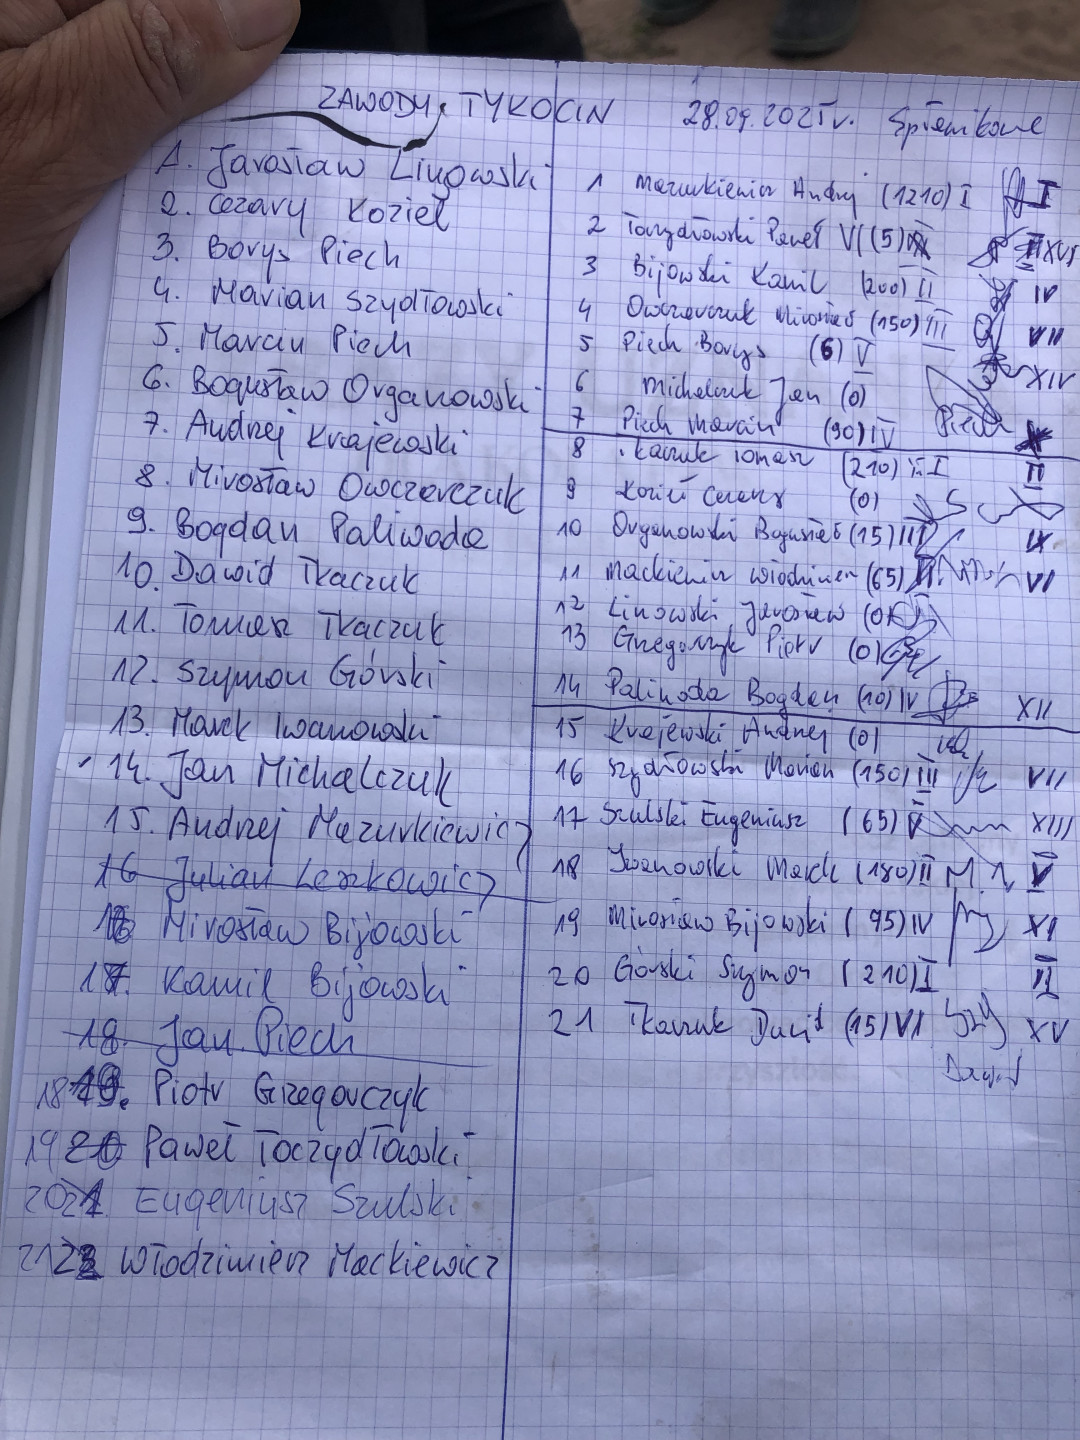 ZAWODY TYKOCIN 28.09.2025r. Spławikowe
1. Jarosław Linowski
2. Cezary Kozieł
3. Borys Piech
4. Marian Szydłowski
5. Marcin Piech
6. Bogusław Organowski
7. Andrzej Krajewski
8. Mirosław Owczarczuk
9. Bogdan Paliwoda
10. Dawid Tkaczuk
11. Tomasz Tkaczuk
12. Szymon Górski
13. Marek Iwanowski
14. Jan Michalczuk
15. Andrzej Mazurkiewicz
16 Julian Leszkowicz
16 Mirosław Bijowski
17. Kamil Bijowski
18. Jan Piech
18 19. Piotr Grzegorczyk
19 20 Paweł Toczydłowski
20 21. Eugeniusz Szulski
21 22 Włodzimierz Mackiewicz
1 Mazurkiewicz Andrzej (1210) I I
2 Toczydłowski Paweł VI (5) XVI
3 Bijowski Kamil (200) II IV
4 Owczarczuk Mirosław (150) III VII
5 Piech Borys (6) V XIV
6 Michalczuk Jan (0)
7 Piech Marcin (90) IV Piech
8 Tkaczuk Tomasz (210) I II
9 Kozieł Cezary (0)
10 Organowski Bogusław (15) III IX
11 Mackiewicz Włodzimierz (65) II VI
12 Linowski Jarosław (0)
13 Grzegorczyk Piotr (0)
14 Paliwoda Bogdan (10) IV XII
15 Krajewski Andrzej (0)
16 Szydłowski Marian (150) III VII
17 Szulski Eugeniusz (65) V XIII
18 Iwanowski Marek (180) II V
19 Mirosław Bijowski (75) IV XI
20 Górski Szymon (210) I II
21 Tkaczuk Dawid (15) VI XV
Dawid